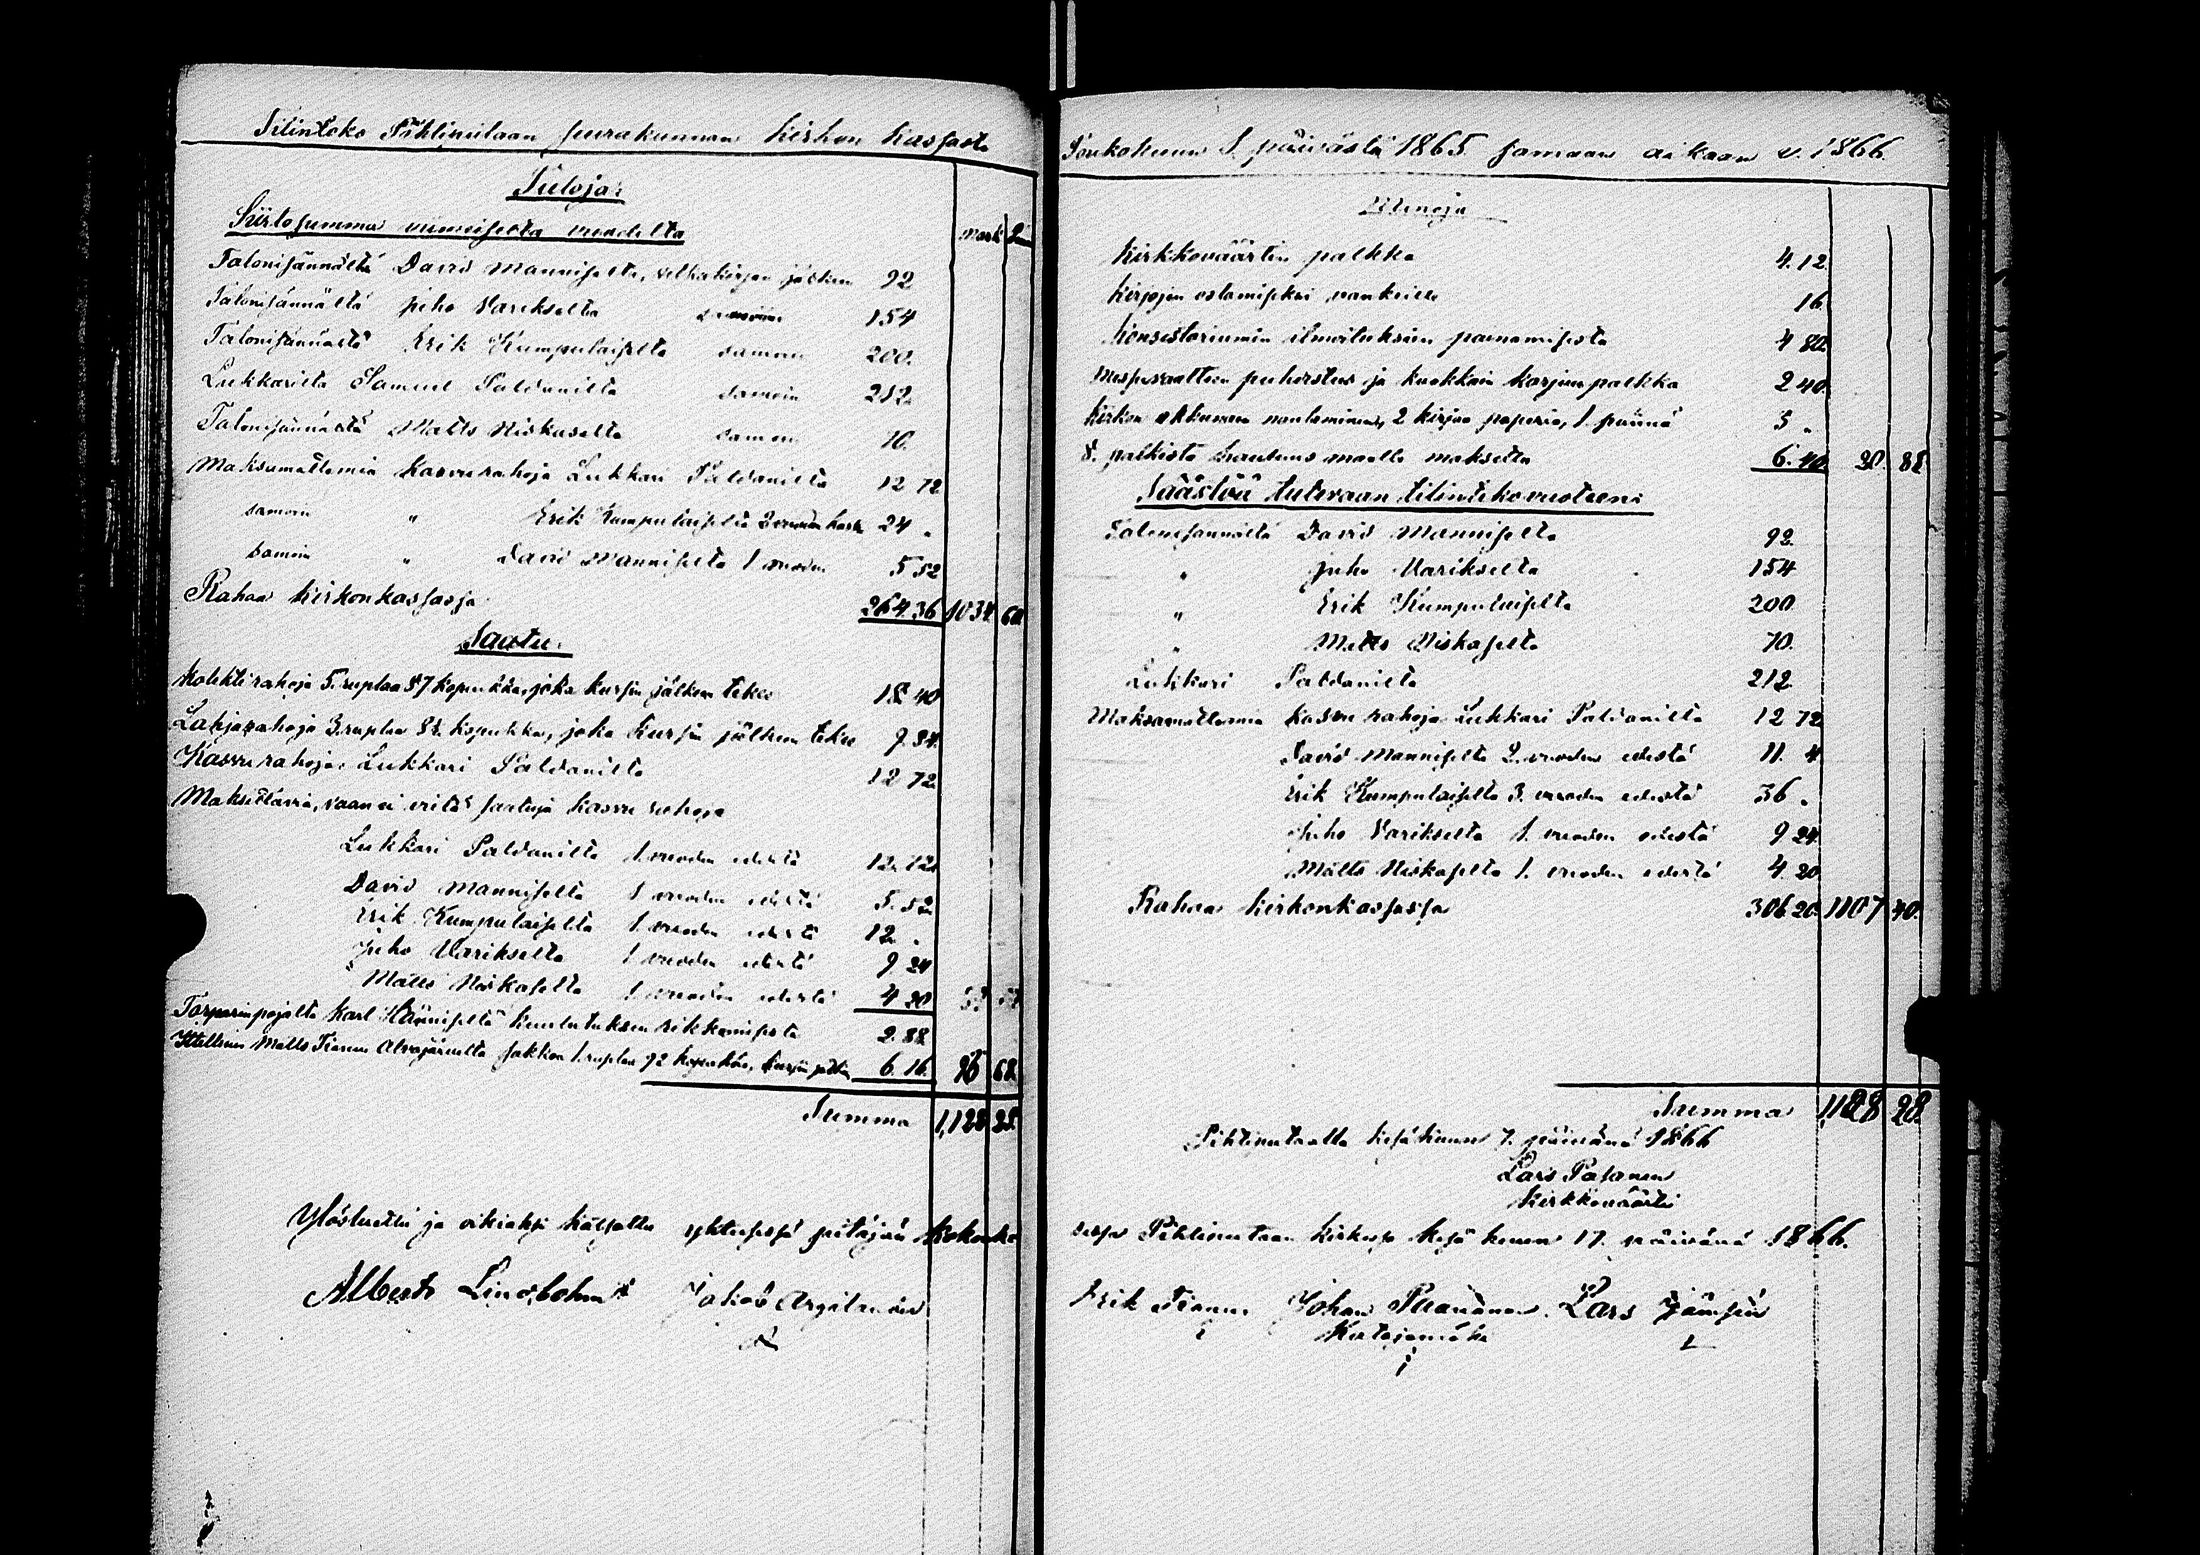 Tilinteko Pihtiputaan seurakunnan kirkon kassasta
Tuloja:
Siirtosumma viimeiseltä vuodelta
Mark P
Talonisännältä David Manniselta, velkakirjan jälkeen 92
Talonisännältä Juho Varikselta samoin 154
Talonisännältä Erik Kumpulaiselta samoin 200.
Lukkarilta Samuel Paldanilta samoin 212.
Talonisännältä Matts Niskaselta samoin 70.
Maksamattomia kasvurahoja Lukkari Paldanilta 12 72
samoin " Erik Kumpulaiselta 2 vuoden 24 "
samoin " David Manniselta 1 vuoden 5 52
Rahaa kirkonkassassa 264.36 1034 60
Saatu.
Kolehtirahoja 5. ruplaa 87 kopeikkaa, joka kurssin jälkeen tekee 18 40
Lahjarahoja 3. ruplaa kopeikkaa, joka kurssin jälkeen tekee
Kasvurahoja Lukkari Paldanilta 12 72
Maksettavia, vaan ei vielä saatuja kasvurahoja
Lukkari Paldanilta 1 vuoden edestä 12. 72
David Manniselta 1 vuoden edestä 5. 52
Erik Kumpulaiselta 1. vuoden edestä 12. "
Juho Varikselta 1 vuoden edestä 9 24
Matts Niskaselta 1 vuoden edestä 4 20
Torparinpojalta Karl Hänniseltä kuulutuksen rikkomisesta 2. 88
Itsellinen Matts Tianen Alvajärveltä sakkoa 1. ruplaa 92 kopeikkaa, kurssin jälkeen 6. 16.
Summa 1,128 28.
Ylösluettu ja oikiaksi katsottu yhteisessä pitäjän kokouk
Albert Lindbohm Jakob Argilander
Toukokuun 1. päivästä 1865 samaan aikaan v. 1866.
Menoja
Kirkkoväärtin palkka 4.12
Kirjojen ostamiseksi vankeille 16
Konsistoriumin ilmoituksien painamisesta 4 80.
puhdistus ja kuokkain korjuupalkka 2 40.
Kirkon akkunain 2 kirjaa paperia, 1. 3 "
8. palkista hautausmaalle maksettu 6. 40 20 88
Säästöä tulevaan tilintekovuoteen:
Talonisännältä David Manniselta 92.
" Juho Varikselta 154
" Erik Kumpulaiselta 200
" Matts Niskaselta 70.
Lukkari Paldanilta 212.
Maksamattomia kasvurahoja Lukkari Paldanilta 12 72
David Manniselta 2. vuoden edestä 11. 4
Erik Kumpulaiselta 3. vuoden edestä 36 "
Juho Varikselta 1. vuoden edestä 9 24
Matts Niskaselta 1. vuoden edestä 4. 20
Rahaa kirkonkassassa 306 20. 1107 40.
Summa 1,128 28.
Pihtiputaalla kesäkuun 7. päivänä 1866
Lars Pasanen
Kirkkoväärti
sessa Pihtiputaan kirkossa kesäkuun 17. päivänä 1866.
Erik Tianen Johan Puranen Lars Jämsen